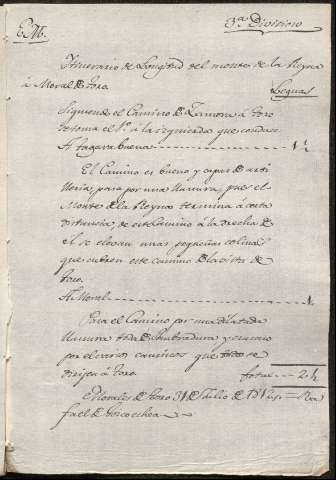 E.M. 3.ª Division
Itinerario de Longitud del monte de la Reyna
á Moral de Toro.
Leguas
Siguiendo el Camino de Zamora á Toro
se toma el 1.º á la izquierda que conduce
A Tagarabuena 1½
El Camino es bueno y capaz de arti
lleria, pasa por una llanura, pues el
Monte de la Reyna termina á corta
distancia de este Camino á la derecha de
él se elevan unas pequeñas colinas
que cubren este camino de la vista de
Toro.
A Moral 1
Pasa el Camino por una dilatada
llanura toda de sembradura y
por el varios caminos que todos se
dirijen á Toro.
Total 2½
Morales de Toro 31 de Julio de 181 = Ra
fael de Gorocochea